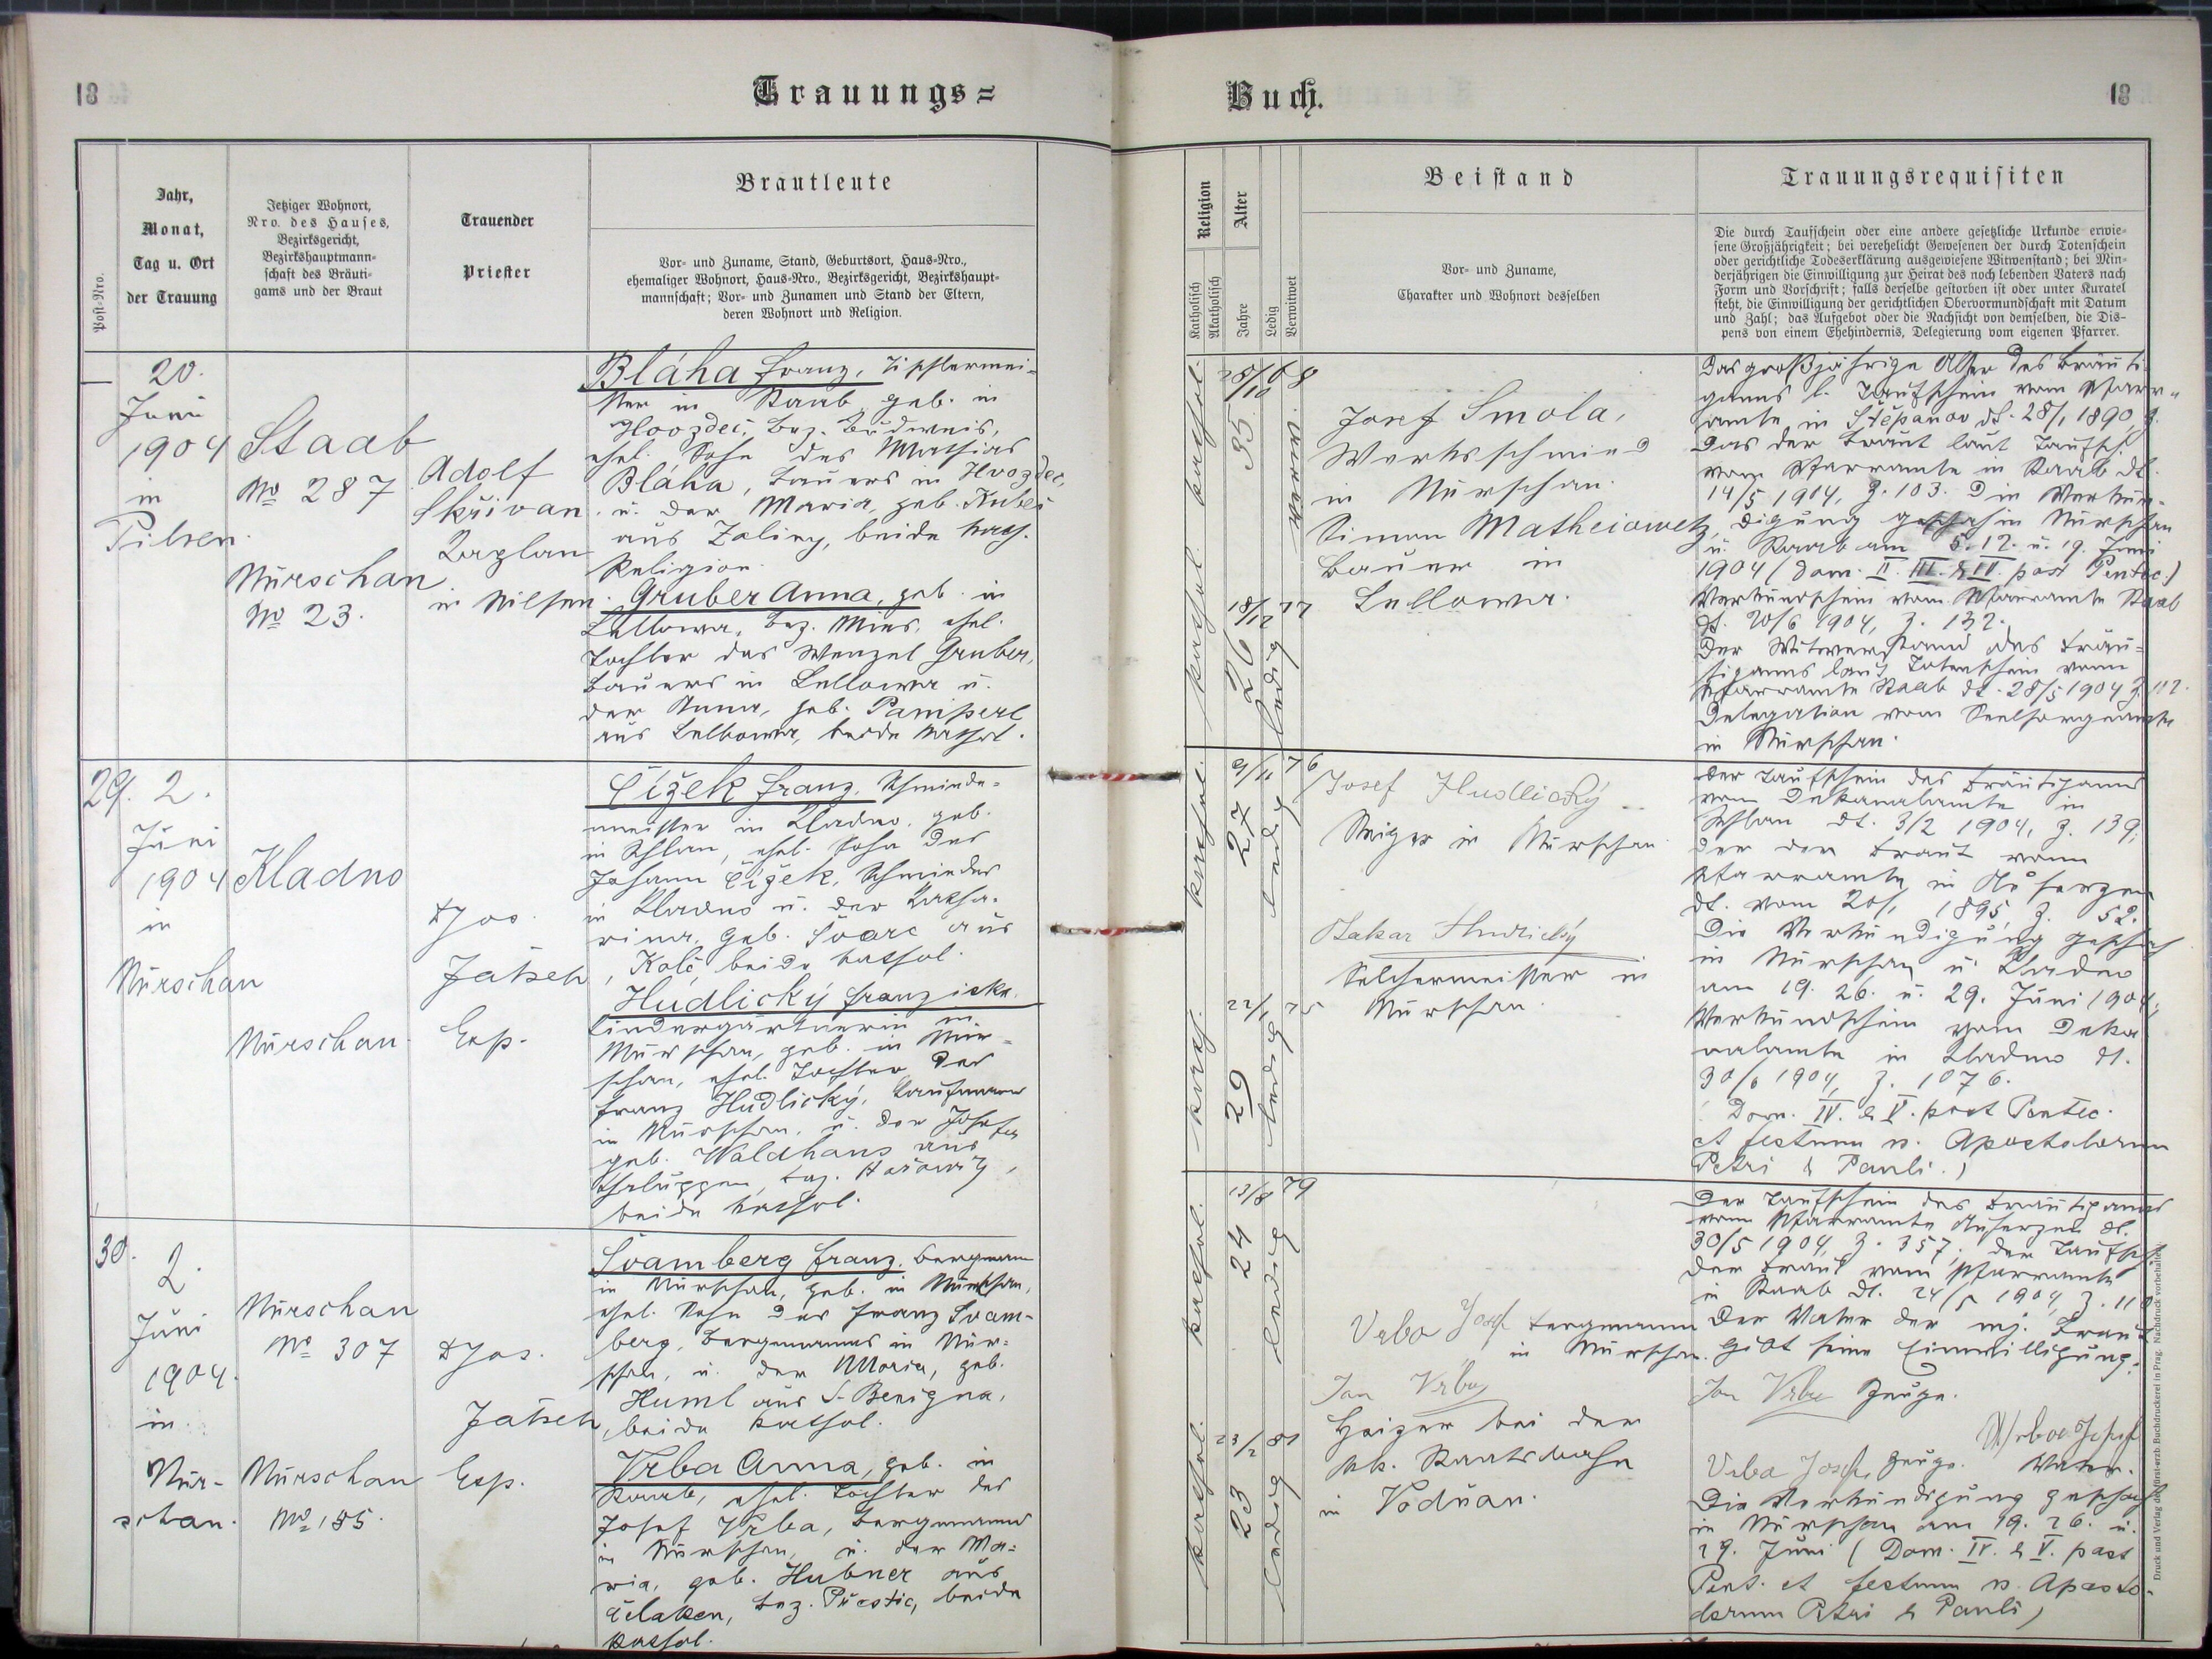 18
Trauungs=
Buch.
18
Post=Nro.
Jahr,
Monat,
Tag u. Ort
der Trauung
Jetziger Wohnort,
Nro. des Hauses,
Bezirksgericht,
Bezirkshauptmann=
schaft des Bräuti=
gams und der Braut
Trauender
Priester
Brautleute
Vor= und Zuname, Stand, Geburtsort, Haus=Nro.,
ehemaliger Wohnort, Haus=Nro., Bezirksgericht, Bezirkshaupt=
mannschaft; Vor= und Zunamen und Stand der Eltern,
deren Wohnort und Religion.
Religion
Katholisch
Akatholisch
Alter
Jahre
Ledig
Verwitwet
Beistand
Vor= und Zuname,
Charakter und Wohnort desselben
Trauungsrequisiten
Die durch Taufschein oder eine andere gesetzliche Urkunde erwie=
sene Großjährigkeit; bei verehelicht Gewesenen der durch Totenschein
oder gerichtliche Todeserklärung ausgewiesene Witwenstand; bei Min=
derjährigen die Einwilligung zur Heirat des noch lebenden Vaters nach
Form und Vorschrift; falls derselbe gestorben ist oder unter Kuratel
steht, die Einwilligung der gerichtlichen Obervormundschaft mit Datum
und Zahl; das Aufgebot oder die Nachsicht von demselben, die Dis=
pens von einem Ehehindernis, Delegierung vom eigenen Pfarrer.
20.
Juni
1904
in
Pilsen.
Staab
No 287
Nürschan
No 23.
Adolf
Skřivan
Kaplan
in Pilsen.
Bláha Franz, Tischlermei-
ster in Staab, geb. in
Hvozdec, Bez. Budweis,
ehel. Sohn des Mathias
Bláha, Bauers in Hvozdec,
u. der Maria, geb. Kubeš
aus Zaliny, beide kath.
Religion.
Gruber Anna, geb. in
Lellowa, Bez. Mies, ehel.
Tochter des Wenzel Gruber,
Bauers in Lellowa u.
der Anna, geb. Pamperl
aus Lellowa, beide kathol.
kathol.
28/10 68
35
verwit.
kathol.
18/12 77
26
ledig
Josef Smola,
Werksschmied
in Nürschan.
Simon Matheiowetz,
Bauer in
Lellowa.
Das großjährige Alter des Bräuti-
gams l. Taufschein vom Pfarr-
amte in Štěpanov dt. 28/1 1890,
das der Braut laut Taufsch.
vom Pfarramte in Staab dt.
14/5 1904, Z. 103. Die Verkün-
digung geschah in Nürschan
u. Staab am 5. 12. u. 19. Juni
1904 (Dom. II. III. & IV. post Pentec.)
Verkündschein vom Pfarramte Staab
dt. 20/6 1904, Z. 132.
Der Witwerstand des Bräu-
tigams laut Totenschein vom
Pfarramte Staab dt. 28/5 1904 Z. 112.
Delegation vom Seelsorgeamte
in Nürschan.
29.
2.
Juni
1904
in
Nürschan
Kladno
Nürschan
Jos.
Jatsch,
Exp.
Čížek Franz, Schmiede-
meister in Kladno, geb.
in Schlan, ehel. Sohn des
Johann Čížek, Schmiedes
in Kladno u. der Katha-
rina, geb. Švarc aus
Kolč beide kathol.
Hudlický Franziska,
Kindergärtnerin in
Nürschan, geb. in Nür-
schan, ehel. Tochter des
Franz Hudlický, Kaufmann
in Nürschan, u. der Josefa
geb. Waldhans aus
Bez. Hořowitz,
beide kathol.
kathol.
9/11 76
27
ledig
kathol.
22/1 75
29
ledig
Josef Hudlický
Steiger in Nürschan
Hudlický
Selchermeister in
Nürschan.
Der Taufschein des Bräutigams
vom Dekanalamte in
Schlan dt. 3/2 1904, Z. 139,
der der Braut vom
Pfarramte in Auherzen
dt. vom 20/1 1895, Z. 52.
Die Verkündigung geschah
in Nürschan u. Kladno
am 19. 26. u. 29. Juni 1904,
Verkündschein vom Deka-
nalamte in Kladno dt.
30/6 1904, Z. 1076.
Dom. IV. & V. post Pentec.
et festum ss. Apostolorum
Petri & Pauli.)
30.
2.
Juni
1904.
in
Nür-
schan.
Nürschan
No 307
Nürschan
No 185.
Jos.
Jatsch,
Exp.
Švamberg Franz, Bergmann
in Nürschan, geb. in Nürschan,
ehel. Sohn des Franz Švam-
berg, Bergmanns in Nür-
schan, u. der Maria, geb.
Huml aus S. Benigna,
beide kathol.
Vrba Anna, geb. in
Staab, ehel. Tochter des
Josef Vrba, Bergmanns
in Nürschan, u. der Ma-
ria, geb. Hubner aus
Čelaken, Bez. Pürstic, beide
kathol.
kathol.
13/8 79
24
ledig
kathol.
23/2 81
23
ledig
Vrba Josef Bergmann
in Nürschan.
Jan Vrba
Heizer bei der
kk. Staatsbahn
in Vodňan.
Der Taufschein des Bräutigams
vom Pfarramte Auherzen dt.
30/5 1904, Z. 357; der Taufsch.
der Braut vom Pfarramte
in Staab dt. 24/5 1904, Z. 110
Der Vater der mj. Braut
gibt seine Einwilligung.
Jan Vrba Zeuge.
Vrba Josef
Vrba Josef, Zeuge. Vater.
Die Verkündigung geschah
in Nürschan am 19. 26. u.
29. Juni (Dom. IV. & V. post
Pent. et festum ss. Aposto-
lorum Petri & Pauli)
Druck und Verlag der fürst-erzb. Buchdruckerei in Prag. Nachdruck vorbehalten.